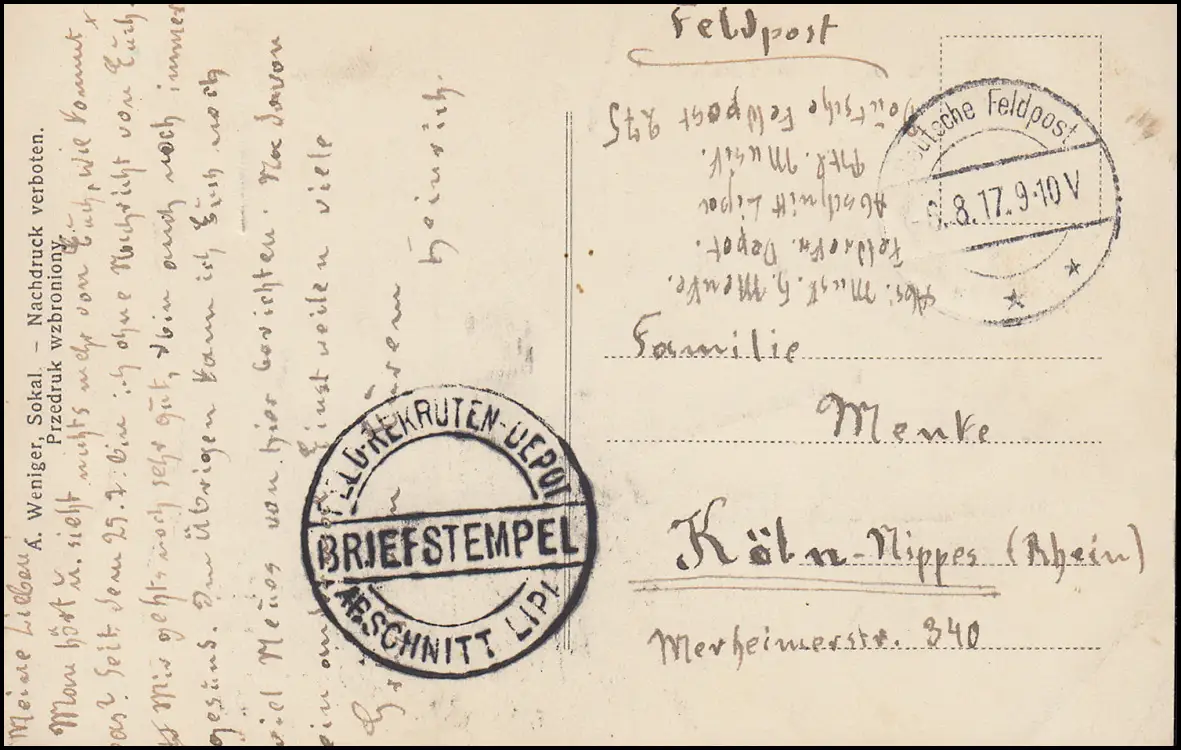 A. Weniger, Sokal. – Nachdruck verboten.
Przedruk wzbroniony.
Meine Lieben!
Man hört u. sieht nichts mehr von Euch, wie kommt
das? Seit dem 25.7. bin ich ohne Nachricht von Euch.
Mir geht's noch sehr gut, bin auch noch immer
gesund. Im Übrigen kann ich Euch noch
viel Neues von hier berichten.
Einstweilen viele
Heinrich.
FELD-REKRUTEN-DEPOT
BRIEFSTEMPEL
ABSCHNITT LIPA
Feldpost
Deutsche Feldpost
8.17. 9-10 V
Abs: Musk. H. Menke.
Feldrekr. Depot.
Abschnitt Lipa
Deutsche Feldpost 275
Familie
Menke
Köln-Nippes (Rhein)
Merheimerstr. 340